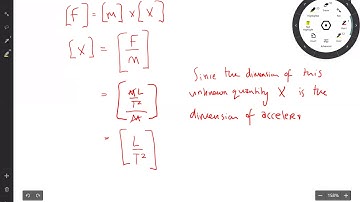 [F] = [m] x [X]
[X] = [F/m]
= [ML/T² / M]
= [L/T²]
Since the dimension of this
unknown quantity X is the
dimension of acceler
158%